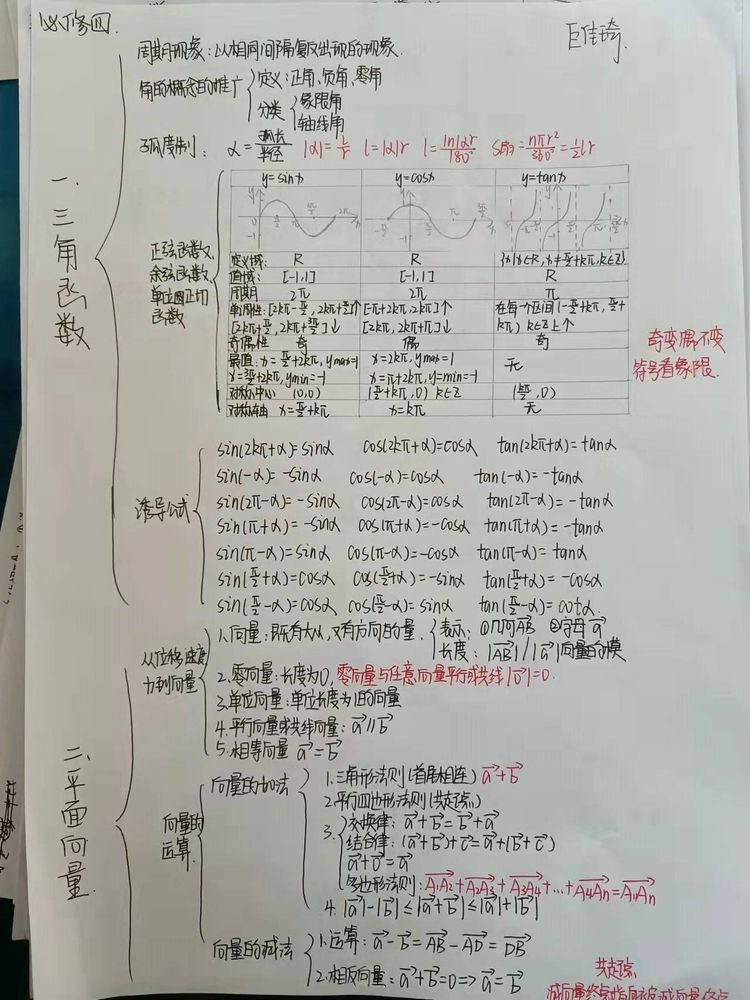 必修四
巨佳琦
一、三角函数
周期现象：以相同间隔重复出现的现象.
角的概念的推广
定义：正角、负角、零角
分类
象限角
轴线角
弧度制： α=弧长/半径 |α|=l/r l=|α|r l=|n|αr/180° S扇=nπr²/360°=½lr
正弦函数、余弦函数、单位圆正切函数
y=sinx y=cosx y=tanx
定义域： R R {x|x∈R,x≠π/2+kπ,k∈Z}
值域： [-1,1] [-1,1] R
周期 2π 2π π
单调性：[2kπ-π/2, 2kπ+π/2]↑ [-π+2kπ,2kπ]↑ 在每一个区间(-π/2+kπ,π/2+kπ) k∈Z上↑
[2kπ+π/2, 2kπ+3π/2]↓ [2kπ,2kπ+π]↓
奇偶性 奇 偶 奇
最值：x=π/2+2kπ,ymax=1 x=2kπ,ymax=1 无
x=3π/2+2kπ,ymin=-1 x=π+2kπ,y=min=-1
对称中心 (0,0) (π/2+kπ,0) k∈Z (kπ/2,0)
对称轴 x=π/2+kπ x=kπ 无
奇变偶不变
符号看象限.
诱导公式
sin(2kπ+α)=sinα cos(2kπ+α)=cosα tan(2kπ+α)=tanα
sin(-α)=-sinα cos(-α)=cosα tan(-α)=-tanα
sin(2π-α)=-sinα cos(2π-α)=cosα tan(2π-α)=-tanα
sin(π+α)=-sinα cos(π+α)=-cosα tan(π+α)=-tanα
sin(π-α)=sinα cos(π-α)=-cosα tan(π-α)=tanα
sin(π/2+α)=cosα cos(π/2+α)=-sinα tan(π/2+α)=-cosα
sin(π/2-α)=cosα cos(π/2-α)=sinα tan(π/2-α)=cotα.
二、平面向量.
从位移速度力到向量
1.向量：既有大小,又有方向的量.
表示：①几何AB→ ②字母a→
长度：|AB→|/|a→|向量的模
2.零向量：长度为0,零向量与任意向量平行或共线|0→|=0.
3.单位向量：单位长度为1的向量
4.平行向量或共线向量：a→∥b→
5.相等向量 a→=b→
向量的运算
向量的加法
1.三角形法则(首尾相连) a→+b→
2.平行四边形法则(共起点)
3.交换律：a→+b→=b→+a→
结合律：(a→+b→)+c→=a→+(b→+c→)
a→+0→=a→
多边形法则：A1A2→+A2A3→+A3A4→+…+A4An→=A1An→
4.|a→|-|b→|≤|a→+b→|≤|a→|+|b→|
向量的减法
1.运算：a→-b→=AB→-AD→=DB→
2.相反向量：a→+b→=0=>a→=b→
共起点
减向量终点指向被减向量终点